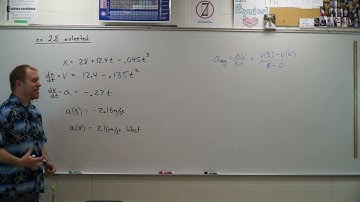 ex 2.8 extended
x = 28 + 12.4t - .045t³
dx/dt = V = 12.4 - .135t²
dv/dt = a = -.27t
a(8) = -2.16 m/s²
a(8) = 2.16 m/s² West
a_avg = ΔV/Δt = V(8) - V(0) / 8 - 0